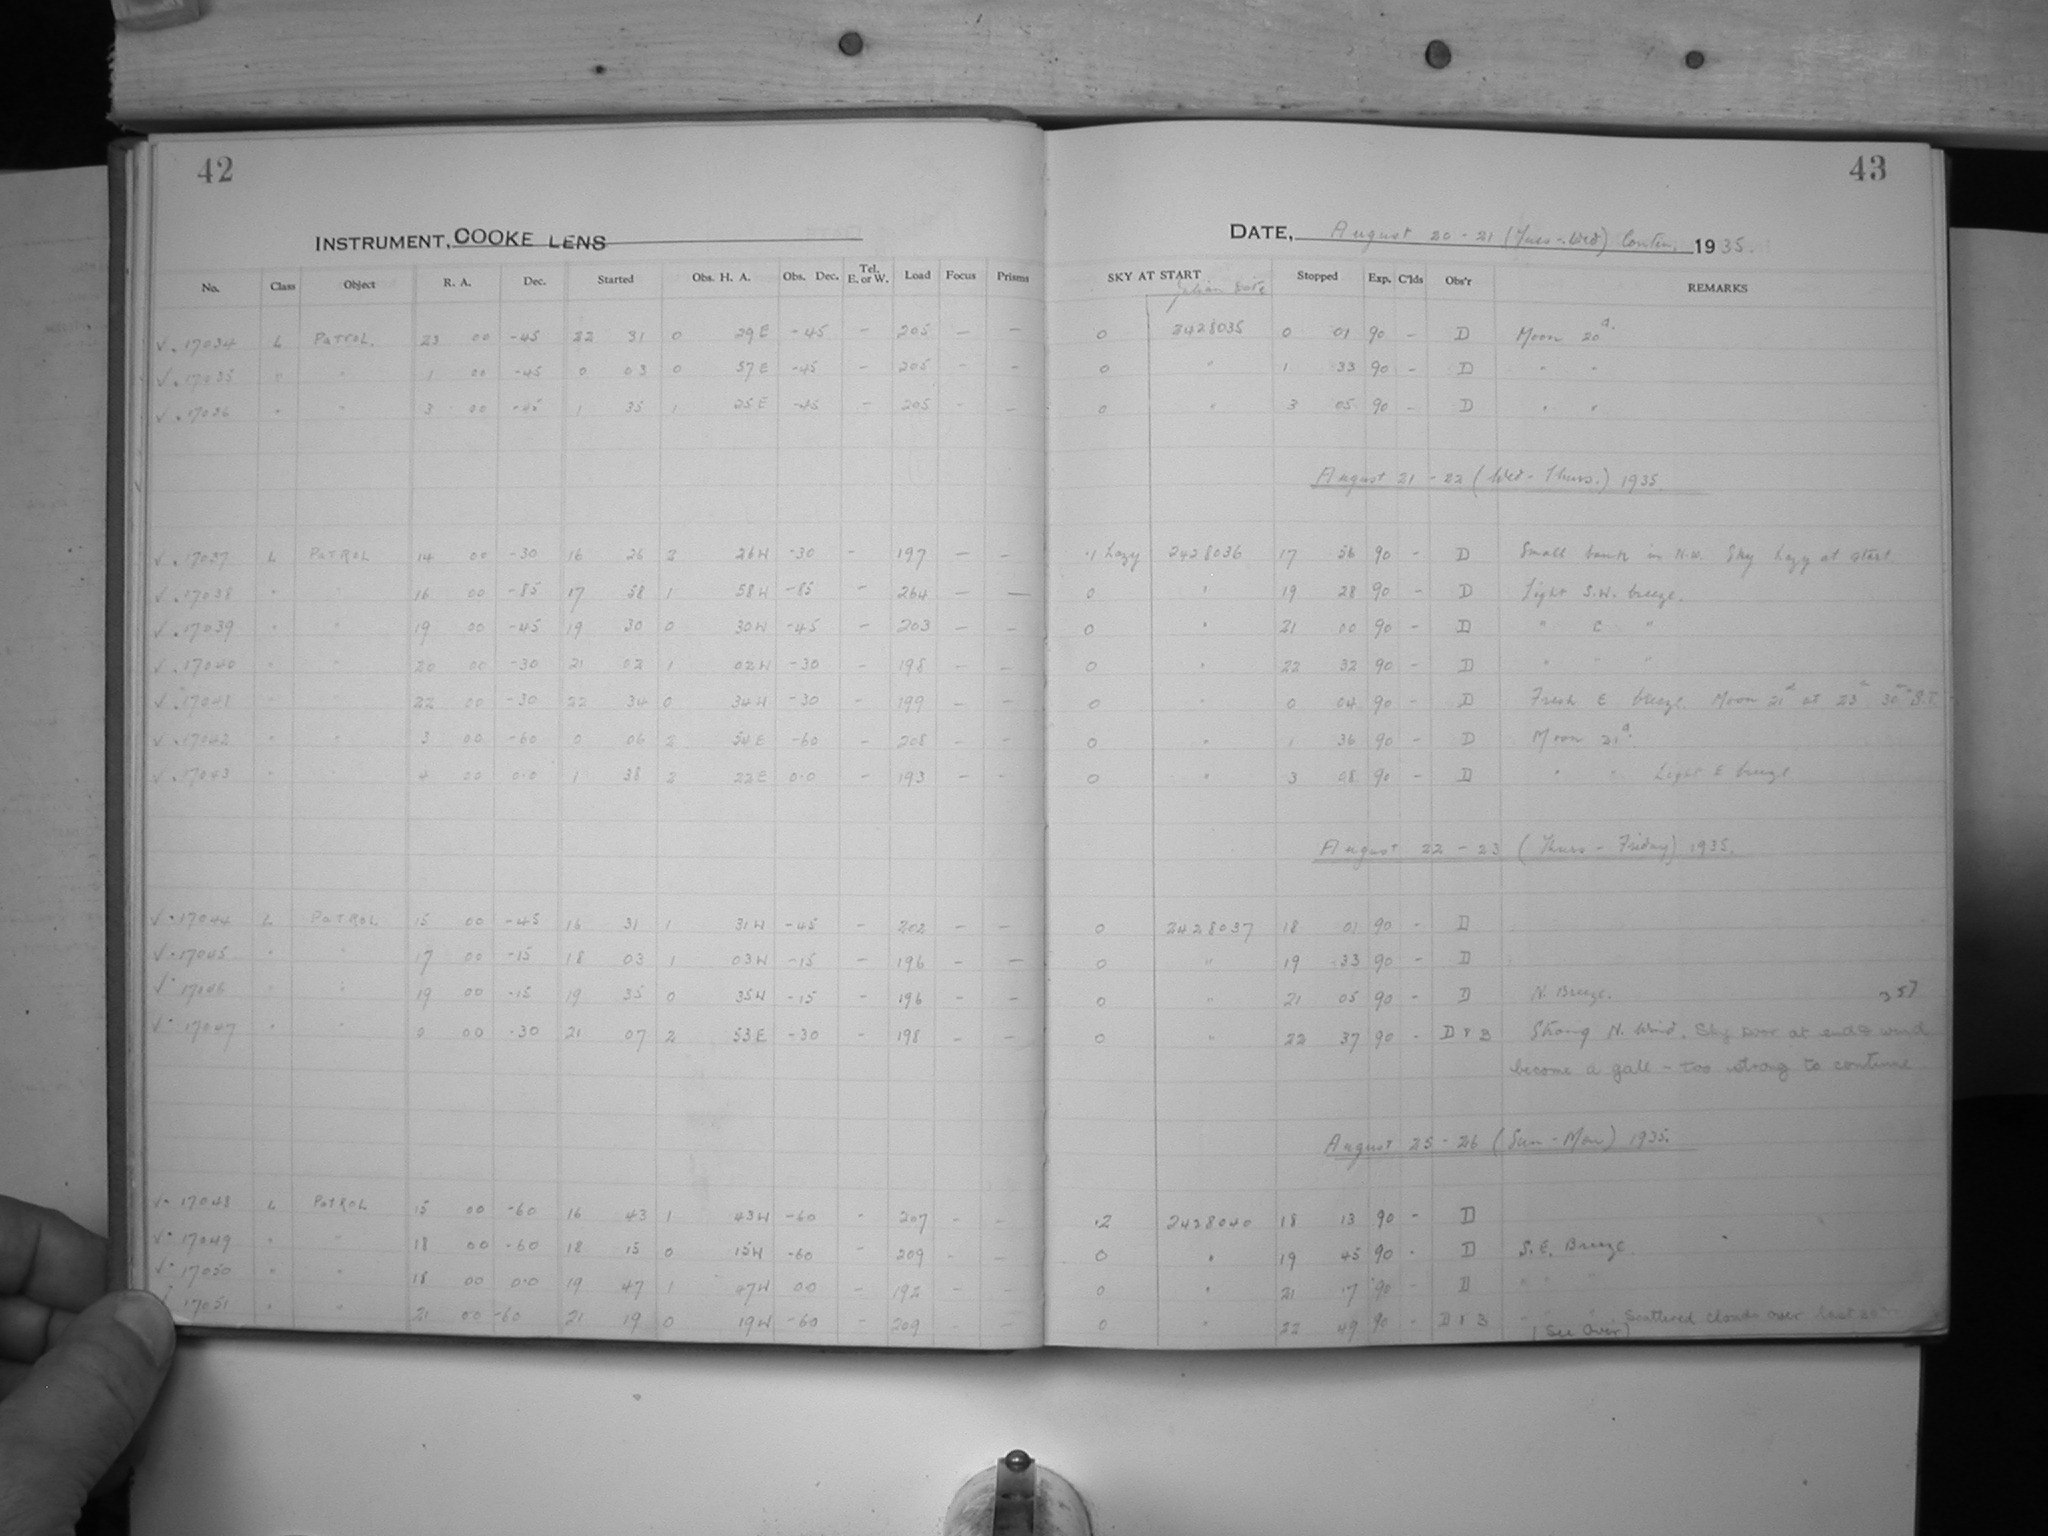 42
43
INSTRUMENT, COOKE LENS
DATE, August 20 - 21 (Tues-Wed) Contin. 1935.
No. Class Object R. A. Dec. Started Obs. H. A. Obs. Dec. Tel. E. or W. Load Focus Prisms SKY AT START Julian Date Stopped Exp. C'lds Obs'r REMARKS
√ . 17034 L PATROL. 23 00 -45 22 31 0 29E -45 - 205 - - 0 2428035 0 01 90 - D Moon 20d.
√ . 17035 " " 1 00 -45 0 03 0 57E -45 - 205 - - 0 " 1 33 90 - D " "
√ . 17036 " " 3 00 -45 1 35 1 25E -45 - 205 - - 0 " 3 05 90 - D " "
August 21 - 22 (Wed - Thurs.) 1935.
√ . 17037 L PATROL 14 00 -30 16 26 2 26W -30 - 197 - - .1 hazy 2428036 17 56 90 - D Small bank in N.W. Sky hazy at start
√ . 17038 " " 16 00 -85 17 58 1 58W -85 - 264 - - 0 " 19 28 90 - D Light S.W. breeze.
√ . 17039 " " 19 00 -45 19 30 0 30W -45 - 203 - - 0 " 21 00 90 - D " "
√ . 17040 " " 20 00 -30 21 02 1 02W -30 - 198 - - 0 " 22 32 90 - D " " "
√ . 17041 " " 22 00 -30 22 34 0 34W -30 - 199 - - 0 " 0 04 90 - D Fresh E breeze. Moon 21d at 23h 30m S.T.
√ . 17042 " " 3 00 -60 0 06 2 54E -60 - 208 - - 0 " 1 36 90 - D Moon 21d.
√ . 17043 " " 4 00 0.0 1 38 2 22E 0.0 - 193 - - 0 " 3 08 90 - D " " Light E breeze
August 22 - 23 (Thurs - Friday) 1935.
√ . 17044 L PATROL 15 00 -45 16 31 1 31W -45 - 202 - - 0 2428037 18 01 90 - D
√ . 17045 " " 17 00 -15 18 03 1 03W -15 - 196 - - 0 " 19 33 90 - D
√ . 17046 " " 19 00 -15 19 35 0 35W -15 - 196 - - 0 " 21 05 90 - D N. Breeze.
√ . 17047 " " 0 00 -30 21 07 2 53E -30 - 198 - - 0 " 22 37 90 - D & B Strong N. Wind. Sky poor at end & wind
become a gale - too strong to continue
August 25 - 26 (Sun - Mon) 1935.
√ . 17048 L PATROL 15 00 -60 16 43 1 43W -60 - 207 - - .2 2428040 18 13 90 - D
√ . 17049 " " 18 00 -60 18 15 0 15W -60 - 209 - - 0 " 19 45 90 - D S.E. Breeze.
√ . 17050 " " 18 00 0.0 19 47 1 47W 0.0 - 192 - - 0 " 21 17 90 - D " "
17051 " " 21 00 -60 21 19 0 19W -60 - 209 - - 0 " 22 49 90 - D & B " " Scattered clouds over last 20m
(See Over)